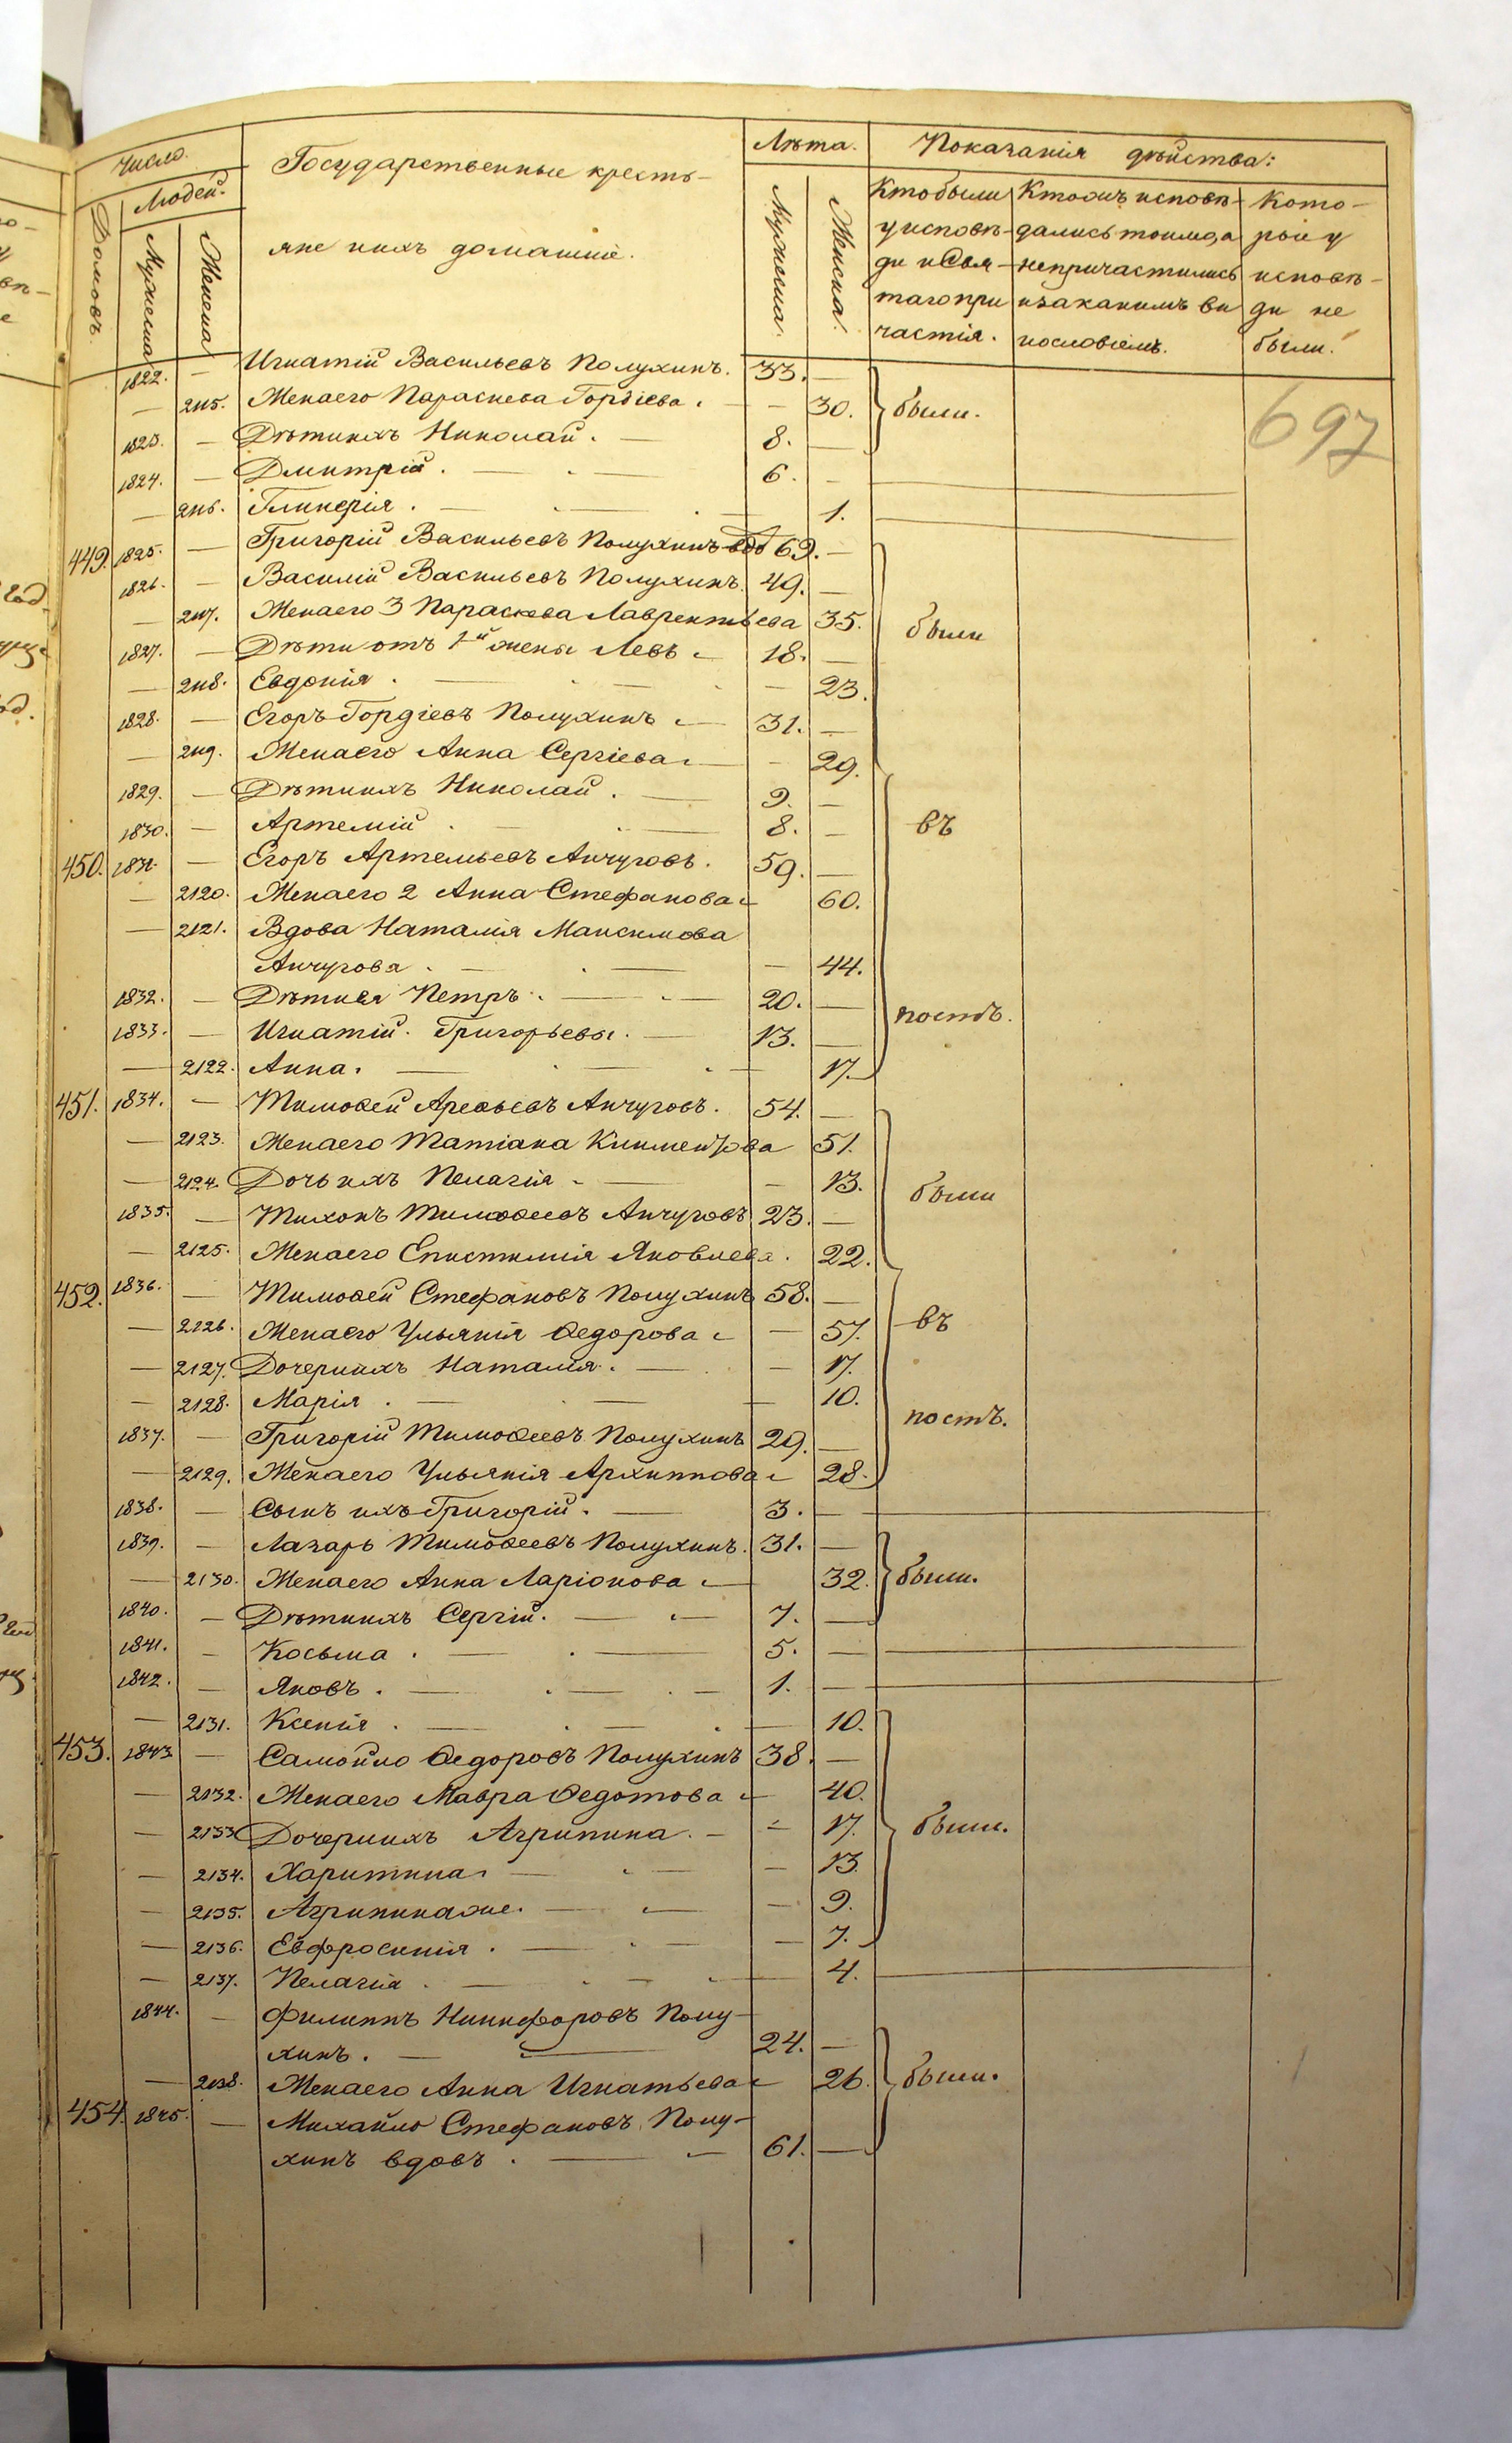 Число.
Людей.
Домовъ
Мужеска
Женска
Государственные кресть-
яне ихъ домашніе.
Лѣта.
Мужеска.
Женска.
Показанія дѣйства:
Кто были
у исповѣ-
ди и Свя-
таго при
частія.
Кто изъ исповѣ-
дались токмо, а
непричастились
и за какимъ ви
нословіемъ.
Кото-
рые у
исповѣ-
ди не
были.
697
1822. — Игнатій Васильевъ Полухинъ. 33. —
— 2115. Жена его Параскева Гордіева. — 30. были.
1823. — Дѣти ихъ Николай. — 8. —
1824. — Дмитрій. — 6. —
— 2116. Гликерія. — 1.
449. 1825. — Григорій Васильевъ Полухинъ вдо 69. —
1826. — Василій Васильевъ Полухинъ. 49. —
— 2117. Жена его 3 Параскева Лаврентьева 35. были
1827. — Дѣти отъ 1й жены Левъ 18. —
— 2118. Евдокія. — 23.
1828. — Егоръ Гордіевъ Полухинъ 31. —
— 2119. Жена его Анна Сергіева — 29.
1829. — Дѣти ихъ Николай. — 9. —
1830. — Артемій. — 8. — въ
450. 1831. — Егоръ Артемьевъ Анчуговъ. 59. —
— 2120. Жена его 2 Анна Стефанова 60.
— 2121. Вдова Наталія Максимова
Анчугова. — 44.
1832. — Дѣти ея Петръ. — 20. — постъ.
1833. — Игнатій. Григорьевы. — 13. —
— 2122. Анна. — 17.
451. 1834. — Тимоѳей Арефьевъ Анчуговъ. 54. —
— 2123. Жена его Татіана Климентова 51.
— 2124. Дочь ихъ Пелагія — 13. были
1835. — Тихонъ Тимоѳеевъ Анчуговъ 23. —
— 2125. Жена его Епистимія Яковлева. 22.
452. 1836. — Тимоѳей Стефановъ Полухинъ 58. —
— 2126. Жена его Ульянія Ѳедорова — 57. въ
— 2127. Дочери ихъ Наталія. — 17.
— 2128. Марія. — 10.
1837. — Григорій Тимоѳеевъ Полухинъ 29. — постъ.
— 2129. Жена его Ульянія Архиппова 28.
1838. — Сынъ ихъ Григорій. — 3. —
1839. — Лазарь Тимоѳеевъ Полухинъ. 31. —
— 2130. Жена его Анна Ларіонова — 32. были.
1840. — Дѣти ихъ Сергій. — 7. —
1841. — Косьма. — 5. —
1842. — Яковъ. — 1. —
— 2131. Ксенія. — 10.
453. 1843 — Самойло Ѳедоровъ Полухинъ 38. —
— 2132. Жена его Мавра Ѳедотова 40.
— 2133 Дочери ихъ Агрипина. — 17. были.
— 2134. Харитина. — 13.
— 2135. Агрипина же. — 9.
— 2136. Евфросинія. — 7.
— 2137. Пелагія. — 4.
1844. — Филиппъ Никифоровъ Полу-
хинъ. — 24. —
— 2138. Жена его Анна Игнатьева 26. были.
454. 1845. — Михайло Стефановъ Полу-
хинъ вдовъ. — 61. —